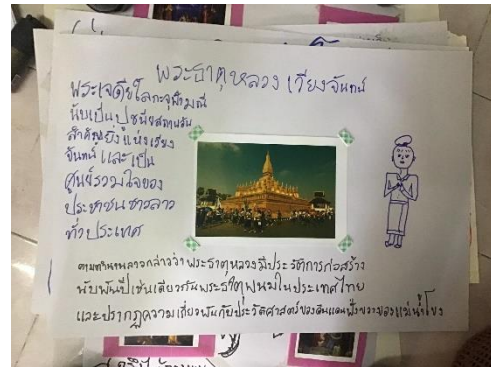 พระธาตุหลวง เวียงจันทน์
พระเจดีย์โลกะจุฬามณี
นับเป็นปูชนียสถานอัน
สำคัญยิ่งแห่งเวียง
จันทน์ และเป็น
ศูนย์รวมใจของ
ประชาชนชาวลาว
ทั่วประเทศ
ตามตำนานลาวกล่าวว่า พระธาตุหลวงมีประวัติการก่อสร้าง
นับพันปีเช่นเดียวกับพระธาตุพนมในประเทศไทย
และปรากฏความเกี่ยวพันกับประวัติศาสตร์ของดินแดนฝั่งขวาของแม่น้ำโขง